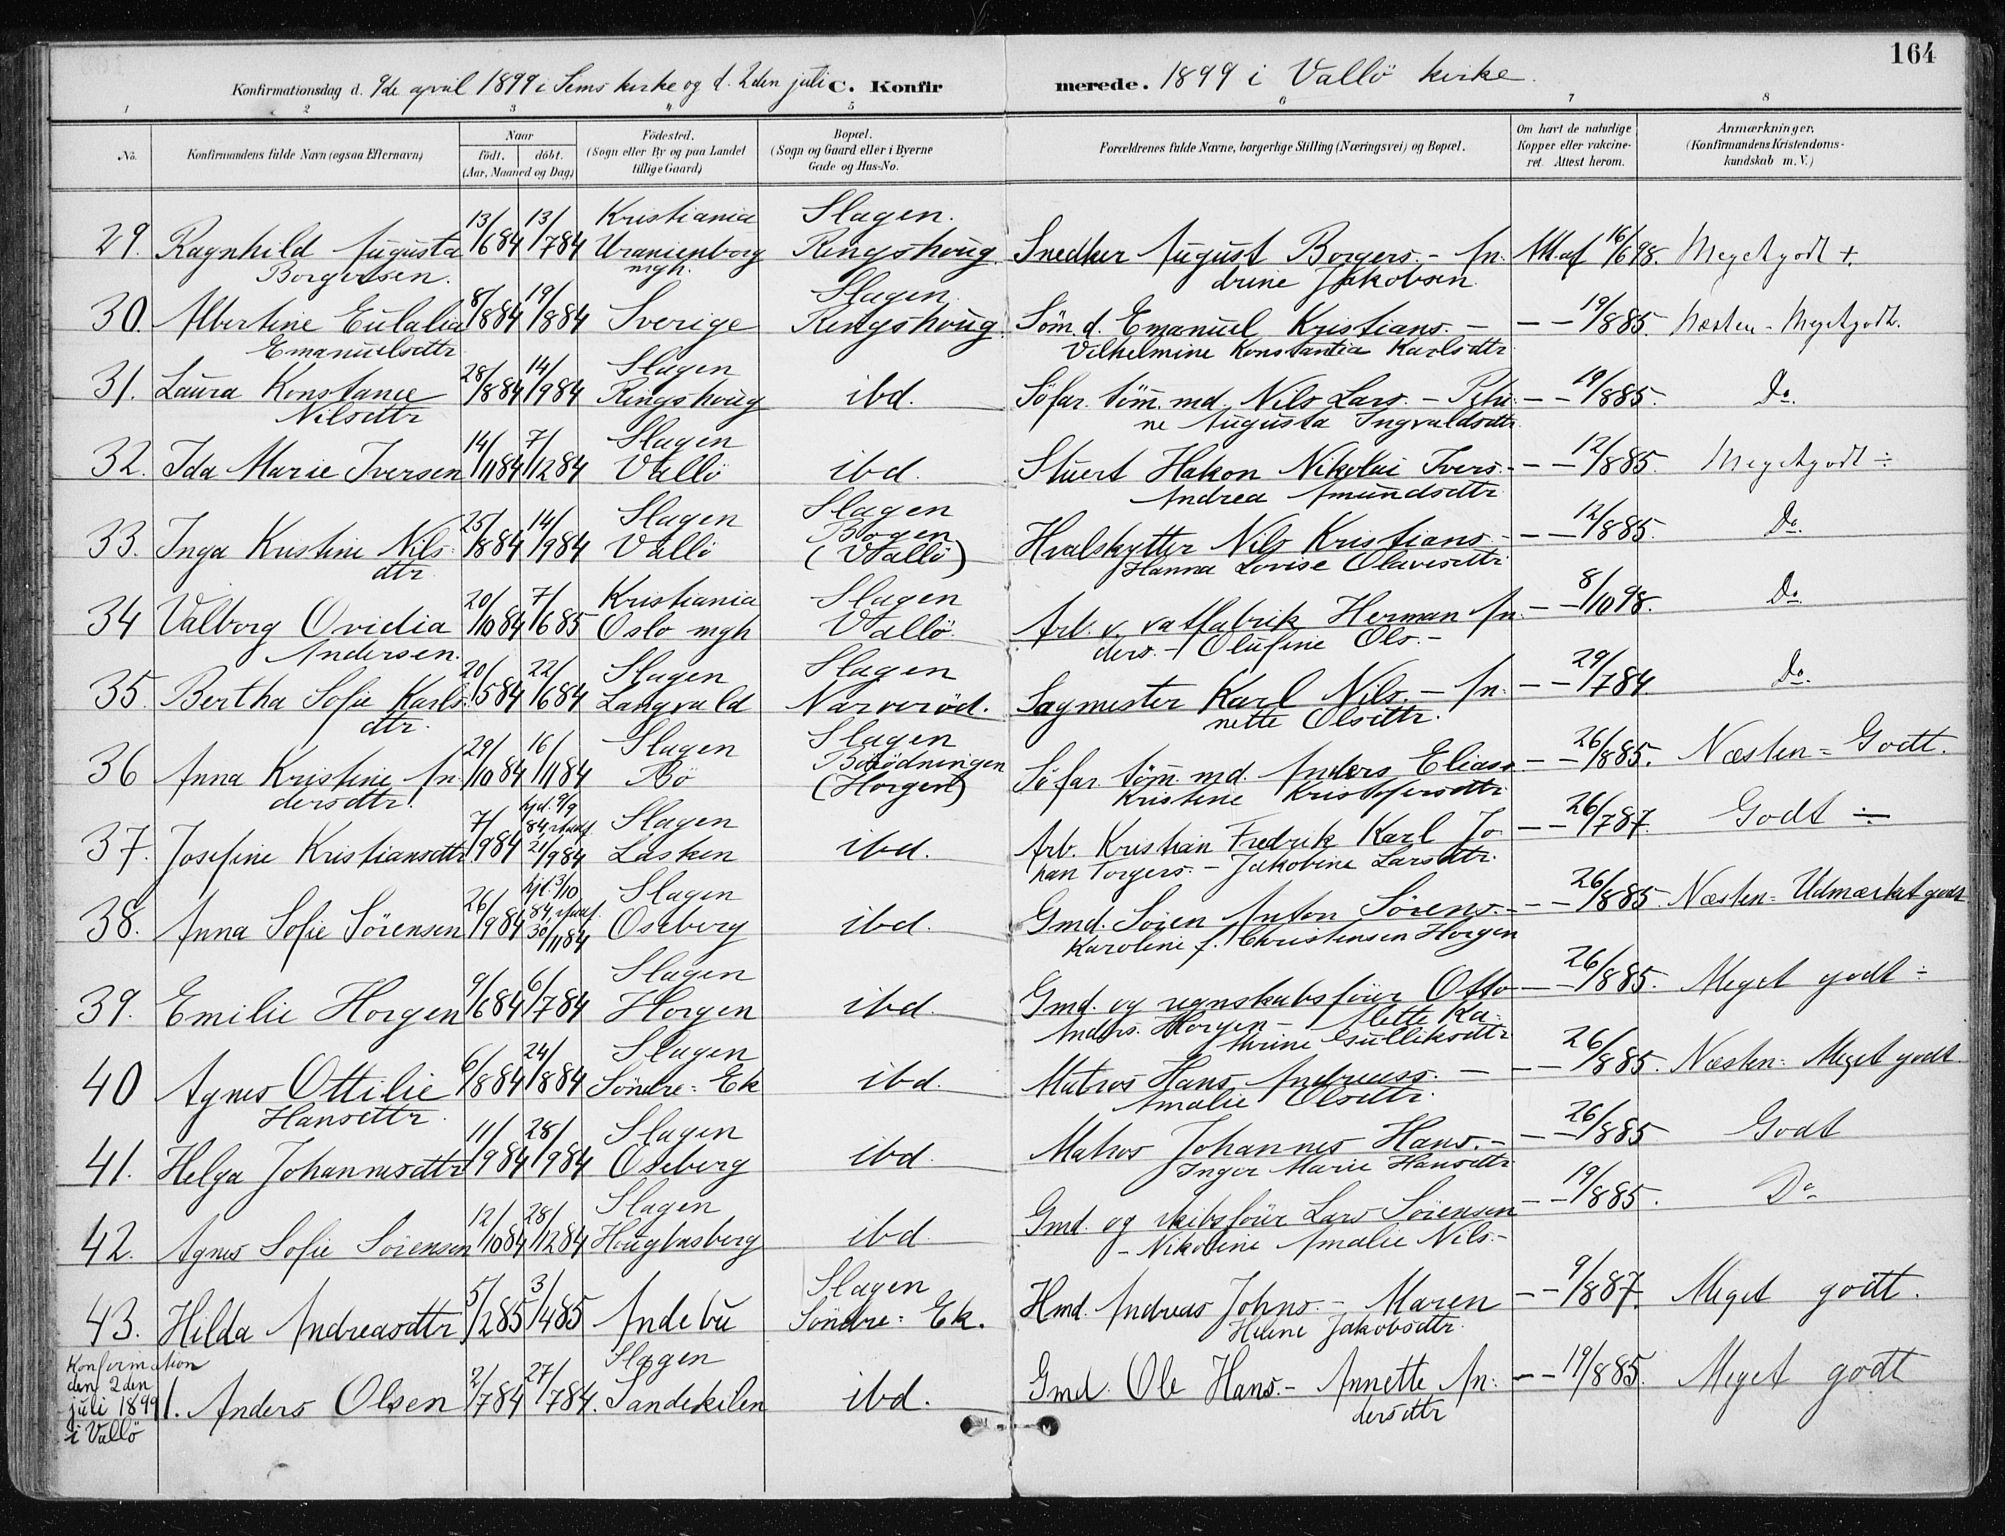 164
Konfirmationsdag d. 9de april 1899 i Sems kirke og d. 2den juli C. Konfirmerede. 1899 i Vallö kirke.
1 2 3 4 5 6 7 8
No. Konfirmandens fulde Navn (ogsaa Efternavn) Naar födt. döbt. (Aar, Maaned og Dag) Födested. (Sogn eller By og paa Landet tillige Gaard) Bopæl. (Sogn og Gaard eller i Byerne Gade og Hus-No. Forældrenes fulde Navne, borgerlige Stilling (Næringsvei) og Bopæl. Om havt de naturlige Kopper eller vakcineret. Attest herom. Anmærkninger. (Konfirmandens Kristendomskundskab m. V.)
29. Ragnhild Augusta Borgersen. 13/6 84 13/7 84 Kristiania Uranienborg mgh. Slagen. Ringshoug. Snedker August Borgers. - Andrine Jakobsen. Att. af 16/6 98. Meget godt +.
30. Albertine Eulalia Emanuelsdtr. 8/8 84 19/8 84 Sverige Slagen. Ringshoug. Töm. d. Emanuel Kristians. - Vilhelmine Konstantia Karlsdtr. — — 19/8 85. Næsten - Meget godt.
31. Laura Konstance Nilsdtr 28/8 84 14/9 84 Slagen Ringshoug ibd. Söfar. töm. md. Nils Lars. - Petrine Augusta Ingvaldsdtr. — — 19/8 85. Do.
32. Ida Marie Iversen 14/11 84 7/12 84 Slagen Vallö ibd. Stuert Hakon Nikolai Ivers. - Andrea Amundsdtr — — 12/8 85. Meget godt ÷
33. Inga Kristine Nilsdtr. 25/8 84 14/9 84 Slagen Vallö Slagen Bogen (Vallö) Hvalskytter Nils Kristians. - Hanna Lovise Olavesdtr — — 12/8 85. Do.
34 Valborg Ovidia Andersen. 20/10 84 7/6 85 Kristiania Oslo mgh Slagen Vallö. Arb. v. vatfabrik Herman Anders. - Olufine Ols. - — — 8/10 98. Do.
35. Bertha Sofie Karlsdtr. 20/5 84 22/6 84 Slagen Langvald Slagen Narveröd. Sagmester Karl Nils. - Annette Olsdtr. — — 29/7 84 Do.
36 Anna Kristine Andersdtr. 29/10 84 16/11 84 Slagen Bö Slagen Börödningen (Horgen) Söfar. töm. md. Anders Elias. - Kristine Kristofersdtr — — 26/8 85. Næsten = Godt.
37. Josefine Kristiansdtr 7/9 84 hjd. 9/9 84, stadf. 21/9 84 Slagen Lasken ibd. Arb. Kristian Fredrik Karl Johan Torgers. - Jakobine Larsdtr. — — 26/7 87. Godt ÷
38. Anna Sofie Sörensen 26/9 84 hjd. 3/10 84, stadf. 30/11 84 Slagen Oseberg ibd. Gmd. Sören Anton Sörens. - Karoline f. Christensen Horgen — — 26/8 85. Næsten = Udmærket godt
39. Emilie Horgen 9/6 84 6/7 84 Slagen Horgen ibd. Gmd. og regnskabsförer Otto Anders. Horgen - Mette Kathrine Gulliksdtr — — 26/8 85. Meget godt ÷
40 Agnes Ottilie Hansdtr. 6/8 84 24/8 84 Slagen Söndre = Ek ibd. Matros Hans Andreass. - Amalie Olsdtr. — — 26/8 85. Næsten = Meget godt.
41. Helga Johannesdtr 11/9 84 28/9 84 Slagen Oseberg ibd. Matros Johannes Hans. - Inger Marie Hansdtr — — 26/8 85 Godt
42. Agnes Sofie Sörensen 12/10 84 28/12 84 Slagen ibd. Gmd. og skibsförer Lars Sörensen - Nikoline Amalie Nils. - — — 19/8 85. Do
43. Hilda Andreasdtr 5/2 85 3/4 85 Andebu Slagen Söndre = Ek. Hmd. Andreas Johns. - Maren Helene Jakobsdtr. — — 9/8 87. Meget godt.
Konfirmation den 2den juli 1899 i Vallö
1. Anders Olsen 2/7 84 27/7 84. Slagen Sandekilen ibd. Gmd. Ole Hans. - Annette Andersdtr — — 19/8 85. Meget godt